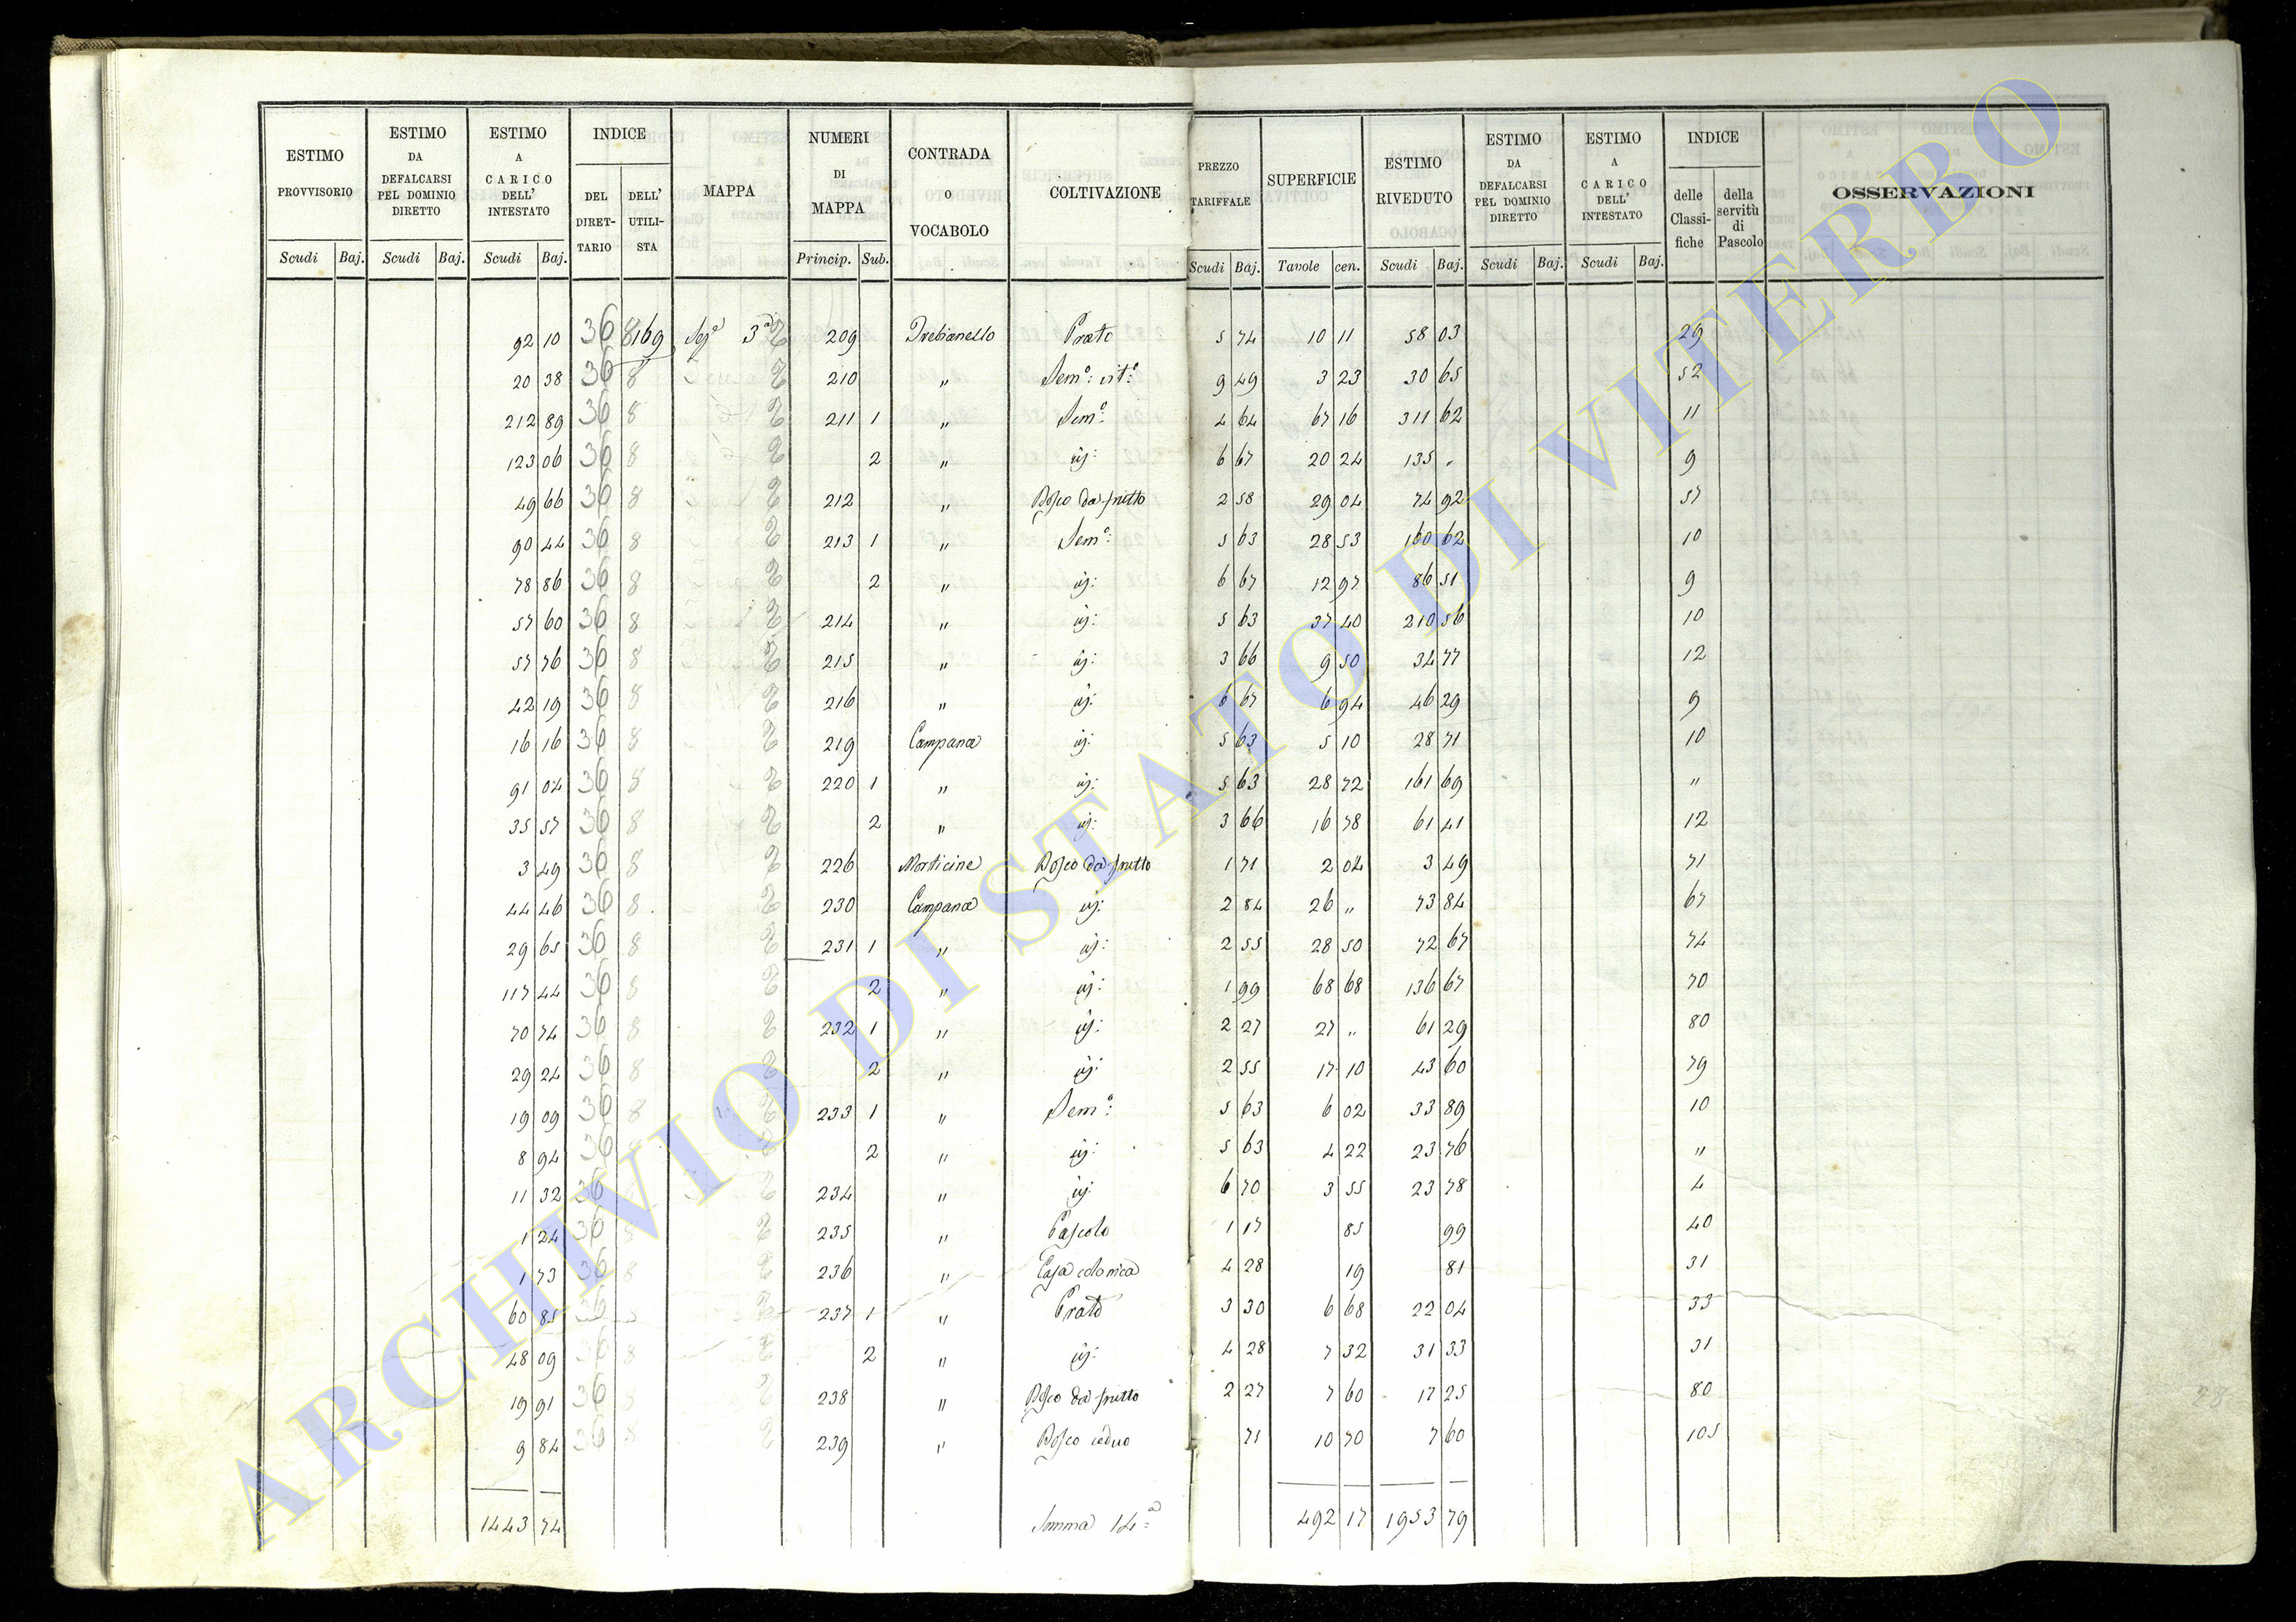 ESTIMO PROVVISORIO Scudi Baj. | ESTIMO DA DEFALCARSI PEL DOMINIO DIRETTO Scudi Baj. | ESTIMO A CARICO DELL' INTESTATO Scudi Baj. | INDICE DEL DIRETTARIO | DELL' UTILISTA | MAPPA | NUMERI DI MAPPA Princip. Sub. | CONTRADA O VOCABOLO | COLTIVAZIONE | PREZZO TARIFFALE Scudi Baj. | SUPERFICIE Tavole cen. | ESTIMO RIVEDUTO Scudi Baj. | ESTIMO DA DEFALCARSI PEL DOMINIO DIRETTO Scudi Baj. | ESTIMO A CARICO DELL' INTESTATO Scudi Baj. | INDICE delle Classifiche | della servitù di Pascolo | OSSERVAZIONI
92 10 36 8 169 Sez.a 3a 2 209 Trebianello Prato 5 74 10 11 58 03 29
20 38 36 8 2 210 " Sem.o: vit:o 9 49 3 23 30 65 52
212 89 36 8 2 211 1 " Sem.o: 4 64 67 16 311 62 11
123 06 36 8 2 2 " id: 6 67 20 24 135 " 9
49 66 36 8 2 212 " Bosco da frutto 2 58 29 04 74 92 57
90 44 36 8 2 213 1 " Sem.o: 5 63 28 53 160 62 10
78 86 36 8 2 2 " id: 6 67 12 97 86 51 9
57 60 36 8 2 214 " id: 5 63 37 40 210 56 10
57 76 36 8 2 215 " id: 3 66 9 50 34 77 12
42 19 36 8 2 216 " id: 6 67 6 94 46 29 9
16 16 36 8 2 219 Campana id: 5 63 5 10 28 71 10
91 04 36 8 2 220 1 " id: 5 63 28 72 161 69 "
35 57 36 8 2 2 " id: 3 66 16 78 61 41 12
3 49 36 8 2 226 Morticine Bosco da frutto 1 71 2 04 3 49 71
44 46 36 8 2 230 Campana id: 2 84 26 " 73 84 67
29 65 36 8 2 231 1 " id: 2 55 28 50 72 67 74
117 44 36 8 2 2 " id: 1 99 68 68 136 67 70
70 74 36 8 2 232 1 " id: 2 27 27 " 61 29 80
29 24 36 8 2 2 " id: 2 55 17 10 43 60 79
19 09 36 8 2 233 1 " Sem.o: 5 63 6 02 33 89 10
8 94 36 2 2 " id: 5 63 4 22 23 76 "
11 32 36 2 234 " id: 6 70 3 55 23 78 4
1 24 36 8 2 235 " Pascolo 1 17 85 99 40
1 73 36 8 2 236 " Casa colonica 4 28 19 81 31
60 85 36 2 237 1 " Prato 3 30 6 68 22 04 33
48 09 36 8 2 2 " id: 4 28 7 32 31 33 31
19 91 36 8 2 238 " Bosco da frutto 2 27 7 60 17 25 80
9 84 36 8 2 239 " Bosco ceduo 71 10 70 7 60 105
1443 74 Somma 14a 492 17 1953 79
ARCHIVIO DI STATO DI VITERBO